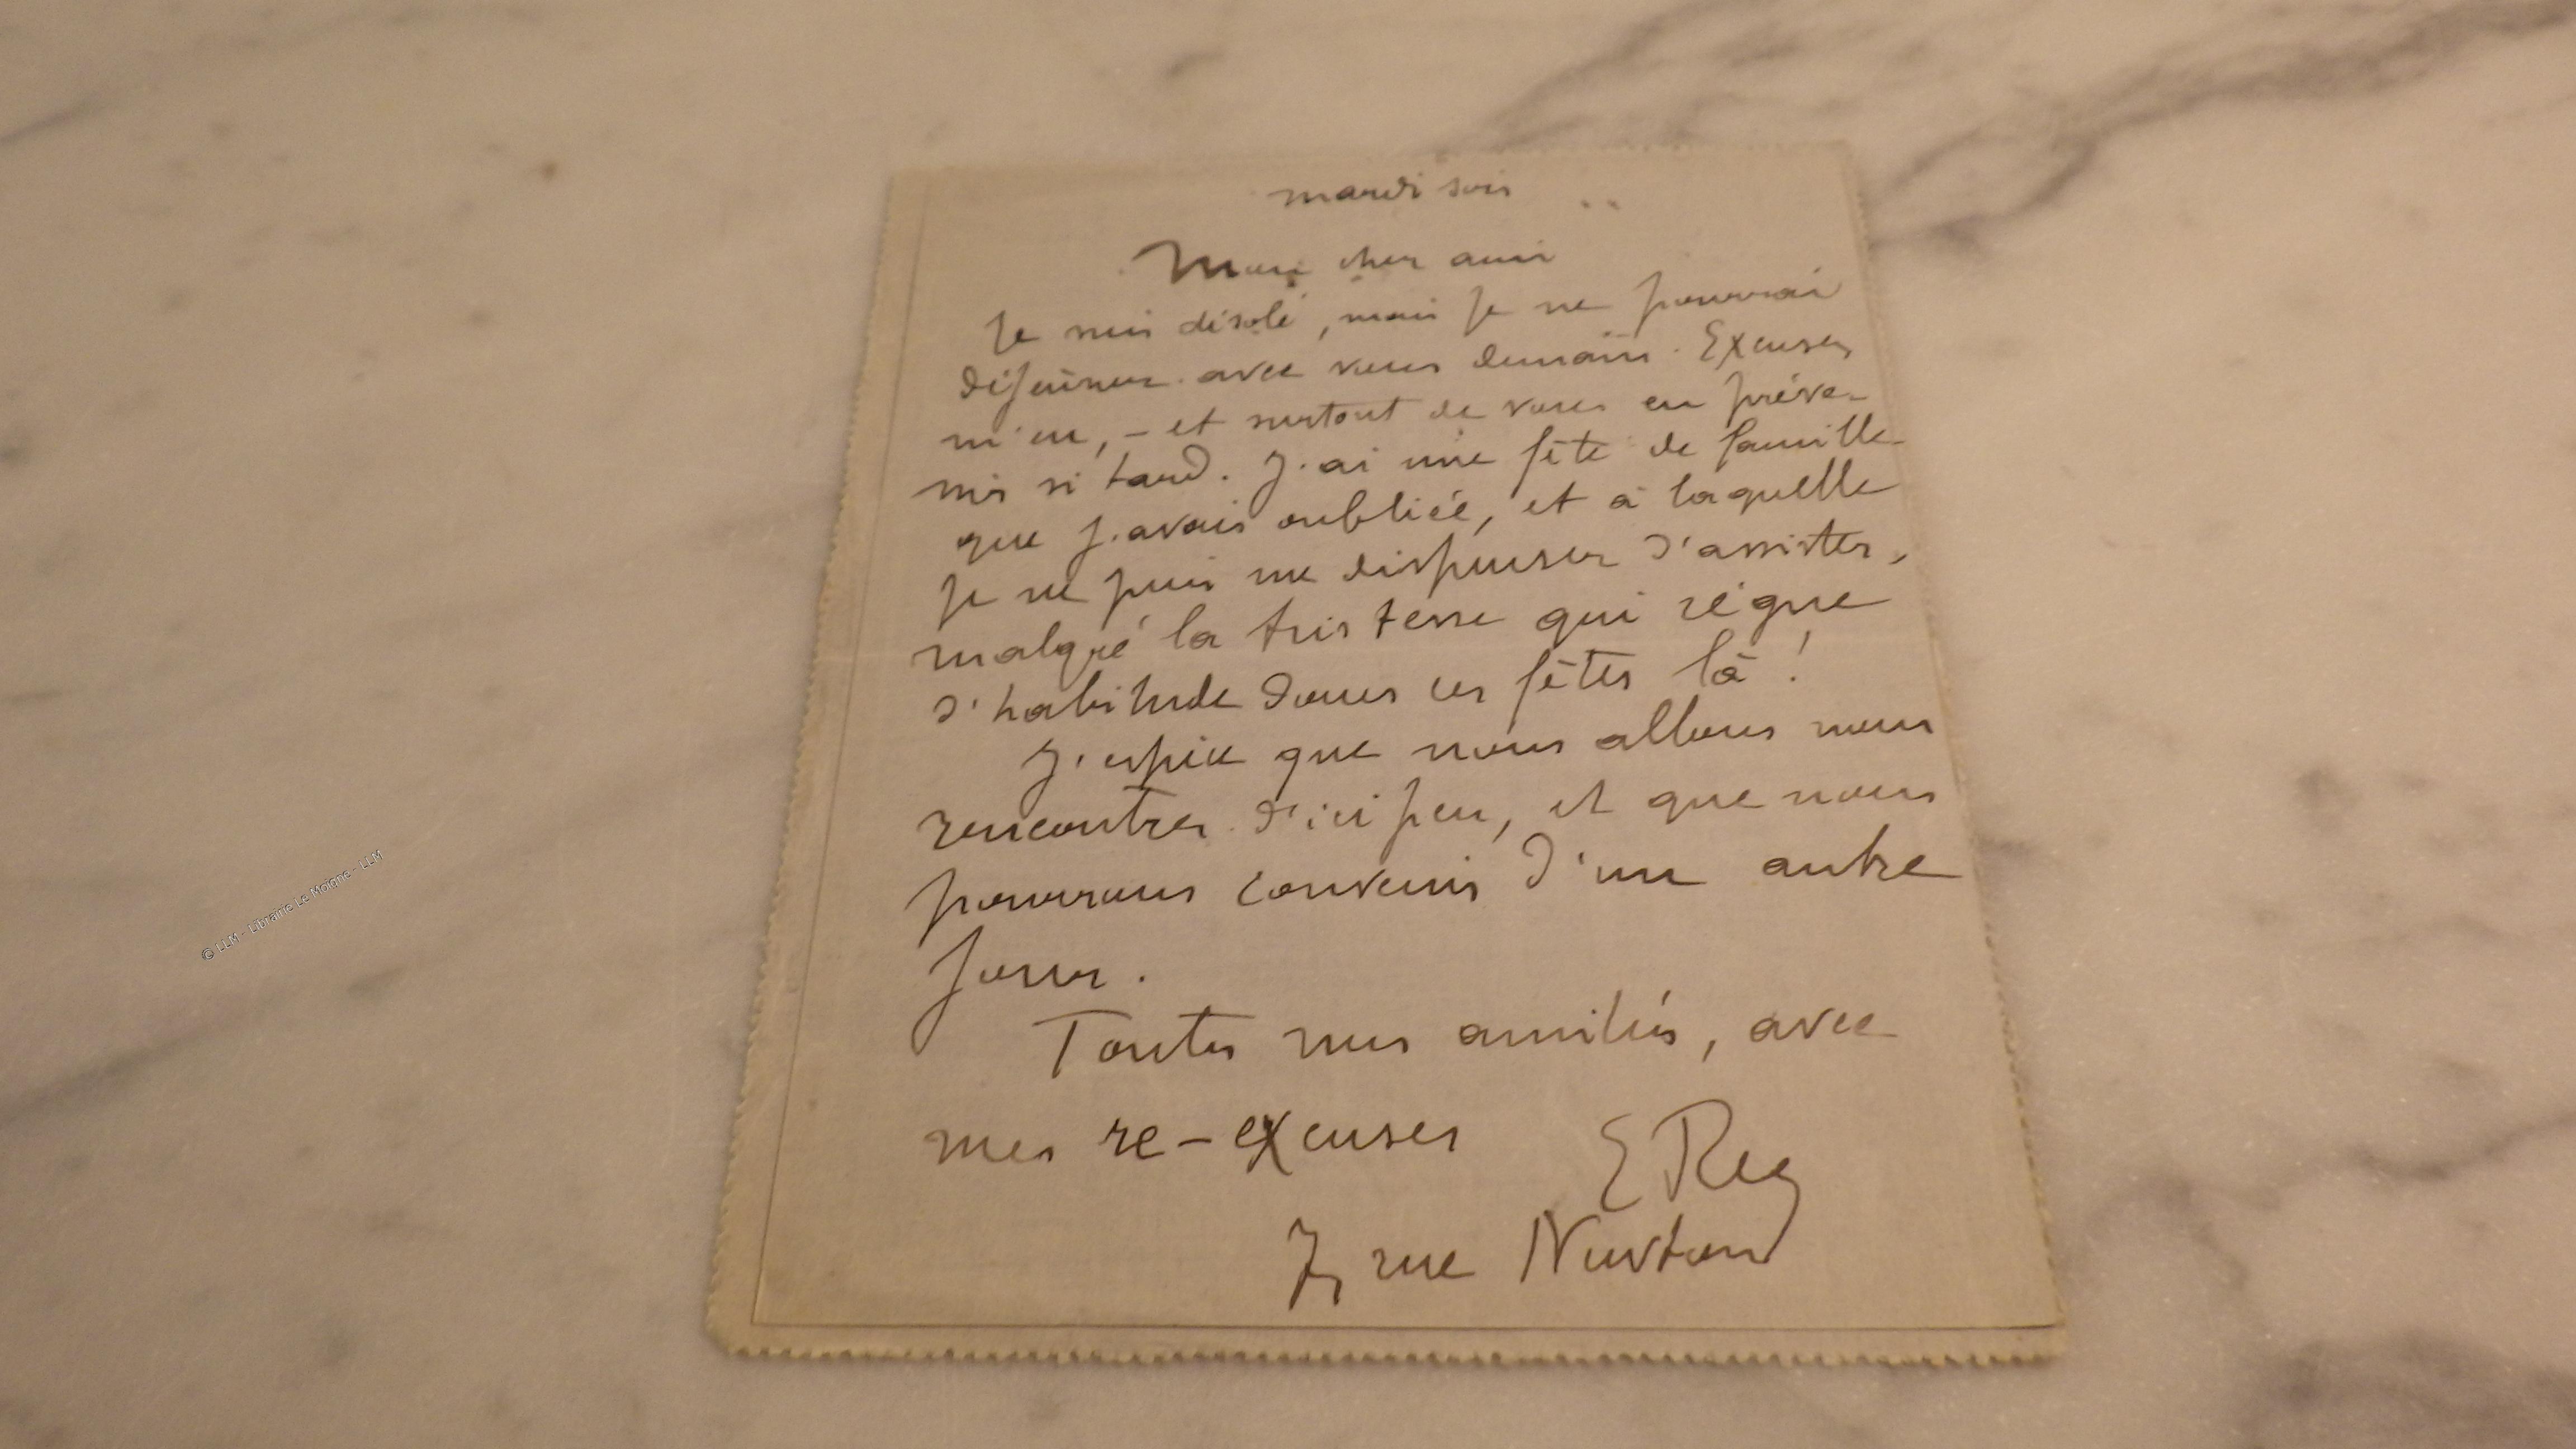 mardi soir
Mon cher ami
Je suis désolé, mais je ne pourrai
déjeûner avec vous demain. Excusez
m'en, – et surtout de vous en préve-
nir si tard. J'ai une fête de famille
que j'avais oubliée, et à laquelle
je ne puis me dispenser d'assister,
malgré la tristesse qui règne
d'habitude dans ces fêtes là !
J'espère que nous allons nous
rencontrer d'ici peu, et que nous
pourrons convenir d'un autre
jour.
Toutes mes amitiés, avec
mes re-excuses
E Rey
7, rue Newton
© LLM - Librairie Le Moigne - LLM